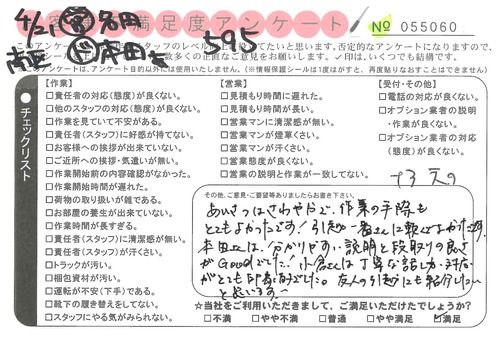 4/21 営 名円
お客様満足度アンケート
№ 055060
ド 本田
595
このアンケートは
スタッフのレベル
たいと思います。否定的なアンケートになりますので、
数多くの正直なご意見をお願いします。✓印は、いくつでも結構です。
アンケートは、アンケート目的以外には使用いたしません。(※情報保護シールは1度はがすと、再度貼りなおすことはできません)
チェックリスト
【作業】
□責任者の対応(態度)が良くない。
□他のスタッフの対応(態度)が良くない。
□作業を見ていて不安がある。
□責任者(スタッフ)に好感が持てない。
□お客様への挨拶が出来ていない。
□ご近所への挨拶・気遣いが無い。
□作業開始前の内容確認がなかった。
□作業開始時間が遅れた。
□荷物の取り扱いが雑である。
□お部屋の養生が出来ていない。
□作業時間が長すぎる。
□責任者(スタッフ)に清潔感が無い。
□責任者(スタッフ)が汗くさい。
□トラックが汚い。
□梱包資材が汚い。
□運転が不安(下手)である。
□靴下の履き替えをしてない。
□スタッフにやる気がみられない。
【営業】
□見積もり時間に遅れた。
□見積もり時間が長い。
□営業マンに清潔感が無い。
□営業マンが煙草くさい。
□営業マンが汗くさい。
□営業態度が良くない。
□営業の説明と作業が一致してない。
【受付・その他】
□電話の対応が良くない。
□オプション業者の説明・作業が良くない。
□オプション業者の対応(態度)が良くない。
その他、ご意見・ご要望等ありましたらお書き下さい。
あいさつはさわやかで、作業の手際も
とてもよかったです!引越し一番さんに頼んでよかったです。
本田さんは、分かりやすい説明と段取りの良さ
がGoodでした!小倉さんは丁寧な話し方・対応
がとても印象的でした。友人の引越にも紹介したい
と思います。
☆当社をご利用いただきまして、ご満足いただけたでしょうか?
□不満 □やや不満 □普通 □やや満足 ☑満足